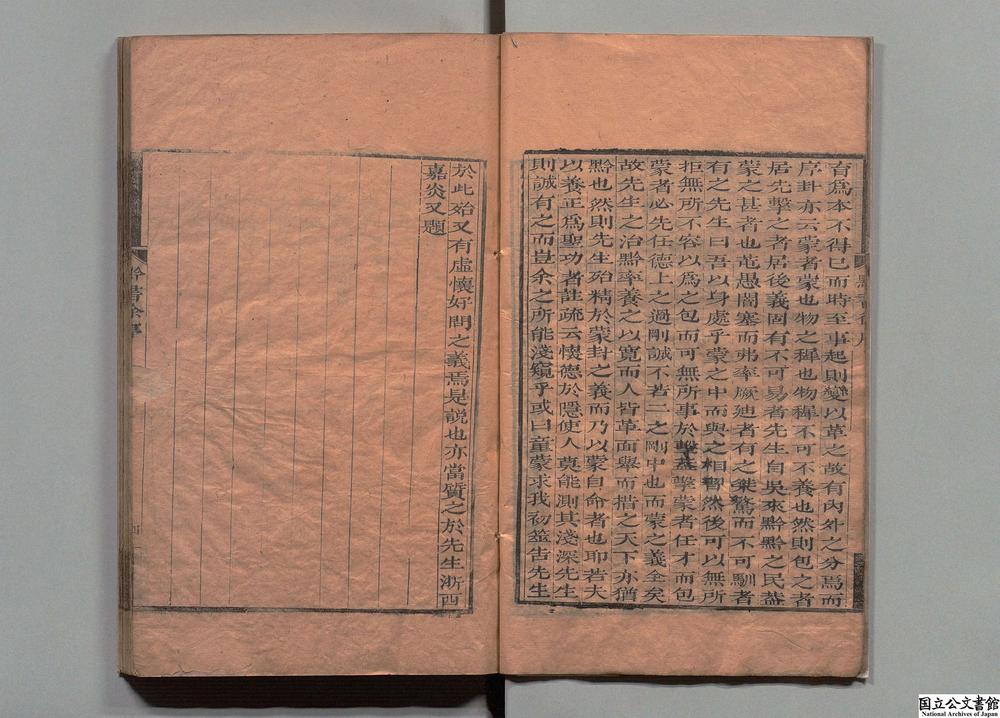 育爲本不得已而時至事起則變以革之故有內外之分焉而
序卦亦云蒙者蒙也物之穉也物穉不可不養也然則包之者
居先擊之者居後義固有不可易者先生自吳來黔黔之民葢
蒙之甚者也芚愚闇塞而弗率厥廸者有之桀驁而不可馴者
有之先生曰吾以身處乎蒙之中而與之相習然後可以無所
拒無所不容以爲之包而可無所事於擊葢擊蒙者任才而包
蒙者必先任德上之過剛誠不若二之剛中也而蒙之義全矣
故先生之治黔率養之以寬而人皆革面舉而措之天下亦猶
黔也然則先生殆精於蒙卦之義而乃以蒙自命者也耶若夫
以養正爲聖功者註疏云懷德於隱使人莫能測其淺深先生
則誠有之而豈余之所能淺窺乎或曰童蒙求我初筮告先生
於此殆又有虛懷好問之義焉是說也亦當質之於先生浙西
嘉炎又題
黔書
国立公文書館
National Archives of Japan